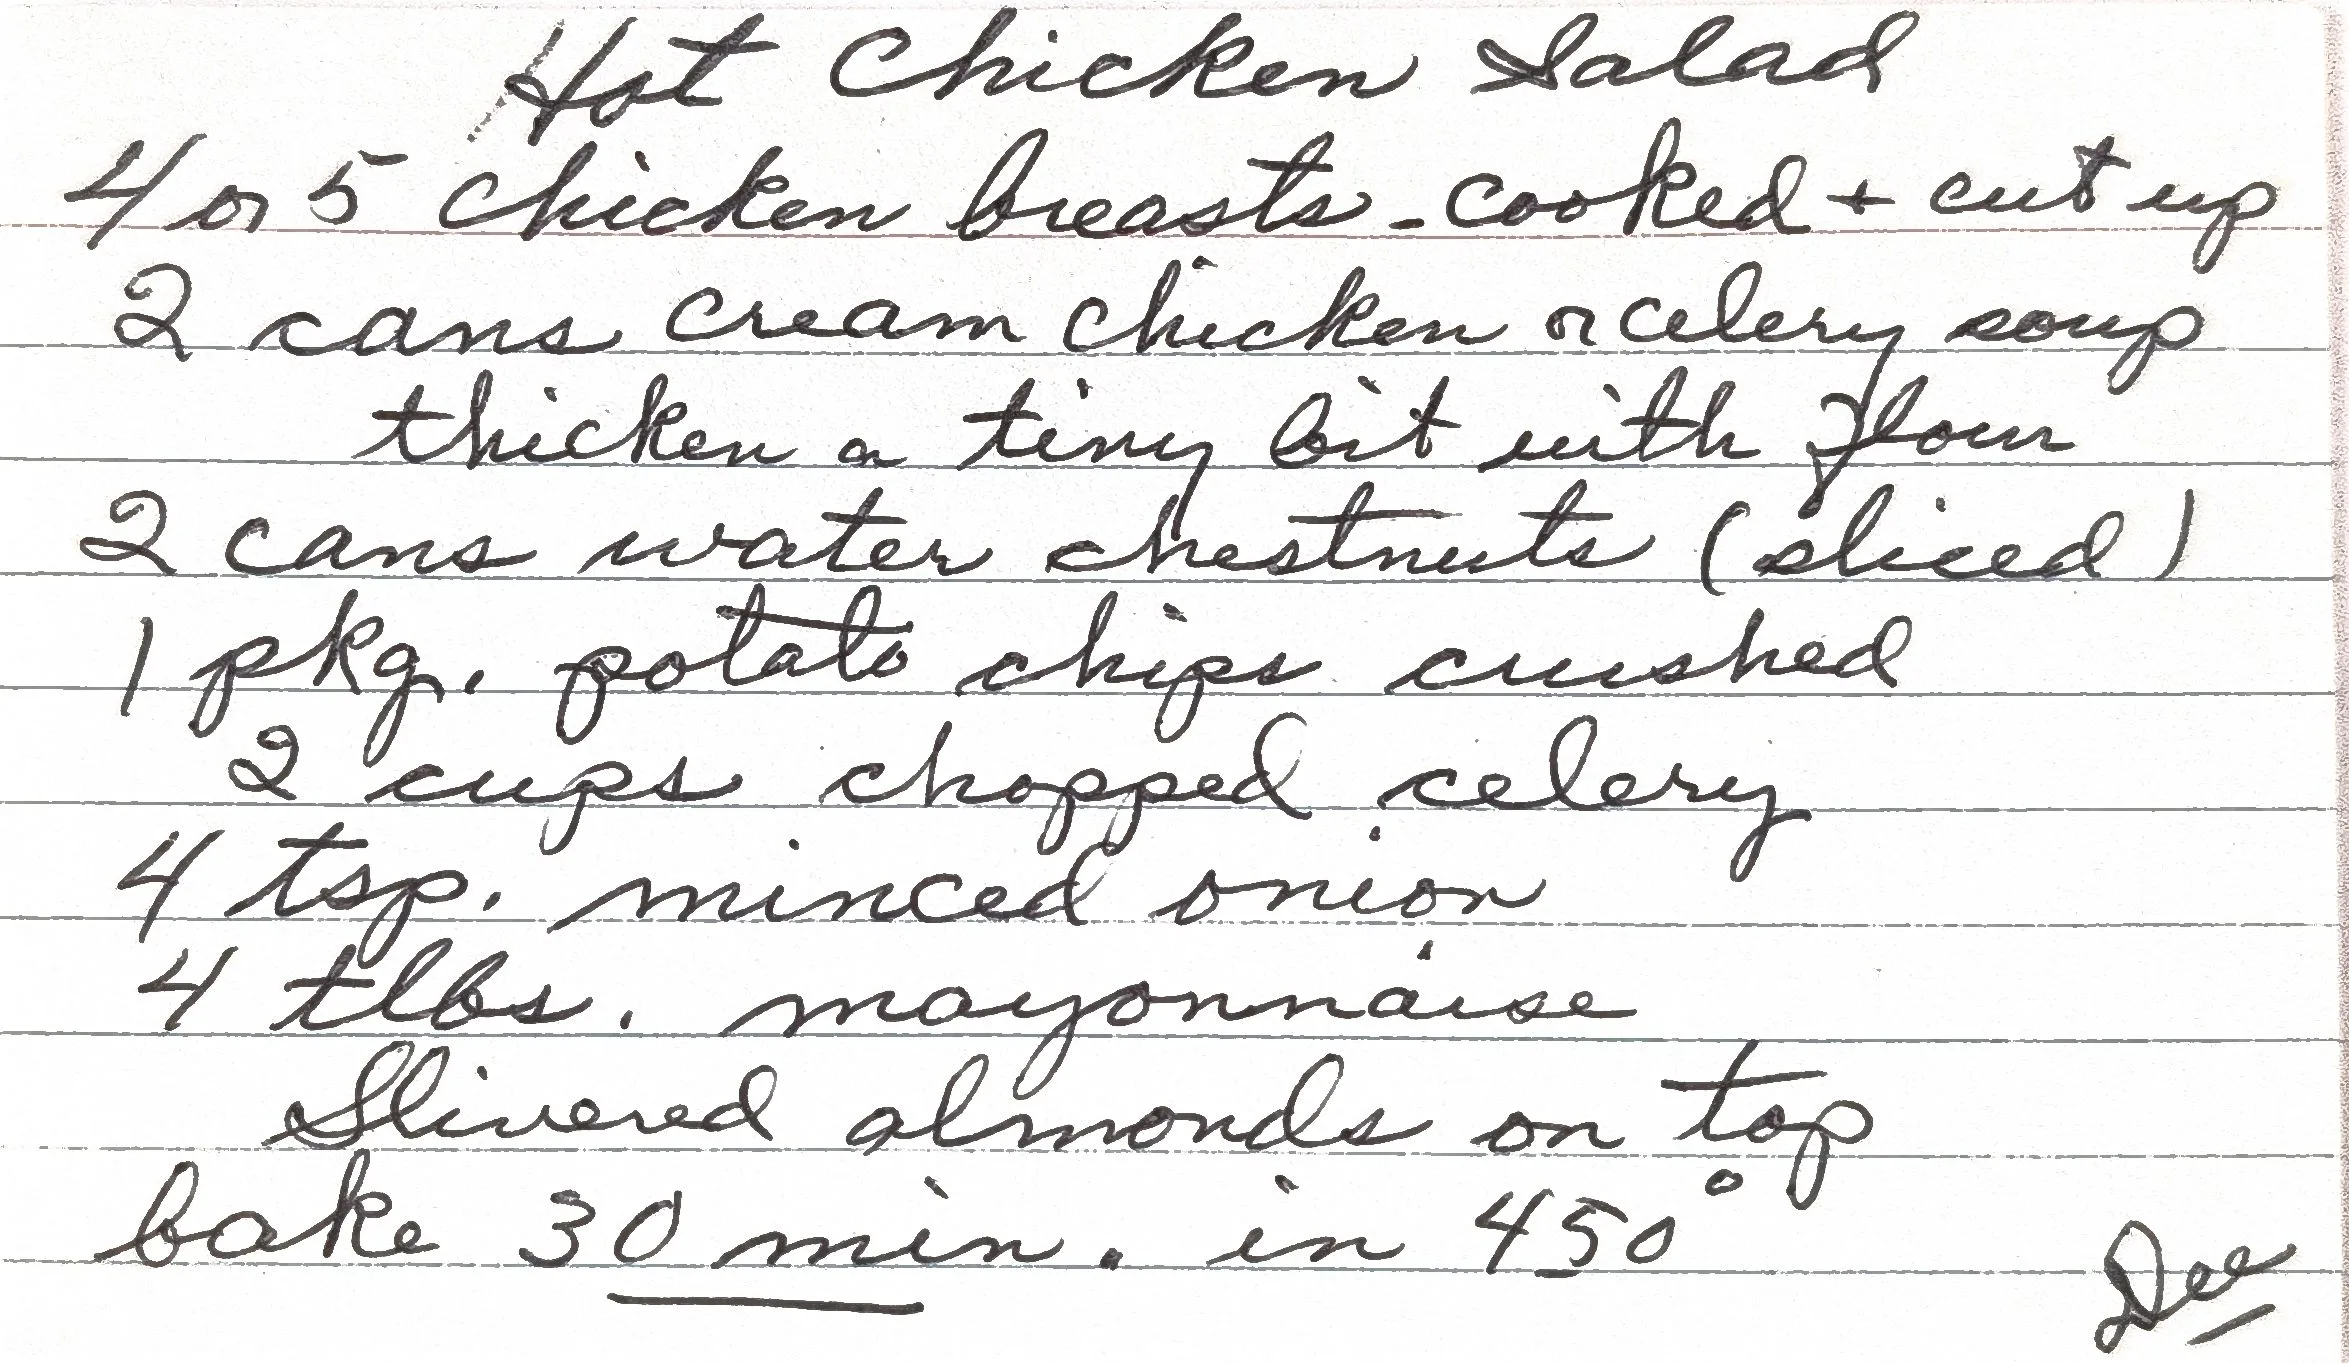 Hot Chicken Salad
4 or 5 chicken breasts - cooked + cut up
2 cans cream chicken or celery soup
thicken a tiny bit with flour
2 cans water chestnuts (sliced)
1 pkg. potato chips crushed
2 cups chopped celery
4 tsp. minced onion
4 tlbs. mayonnaise
Slivered almonds on top
bake 30 min. in 450°
Dee